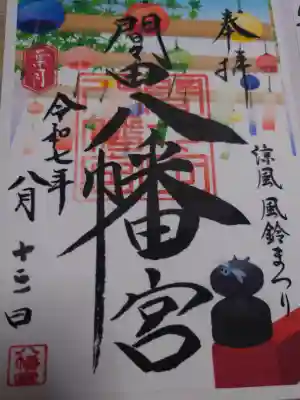 奉拝
涼風 風鈴まつり
間々田八幡宮
令和七年
八月 十三日